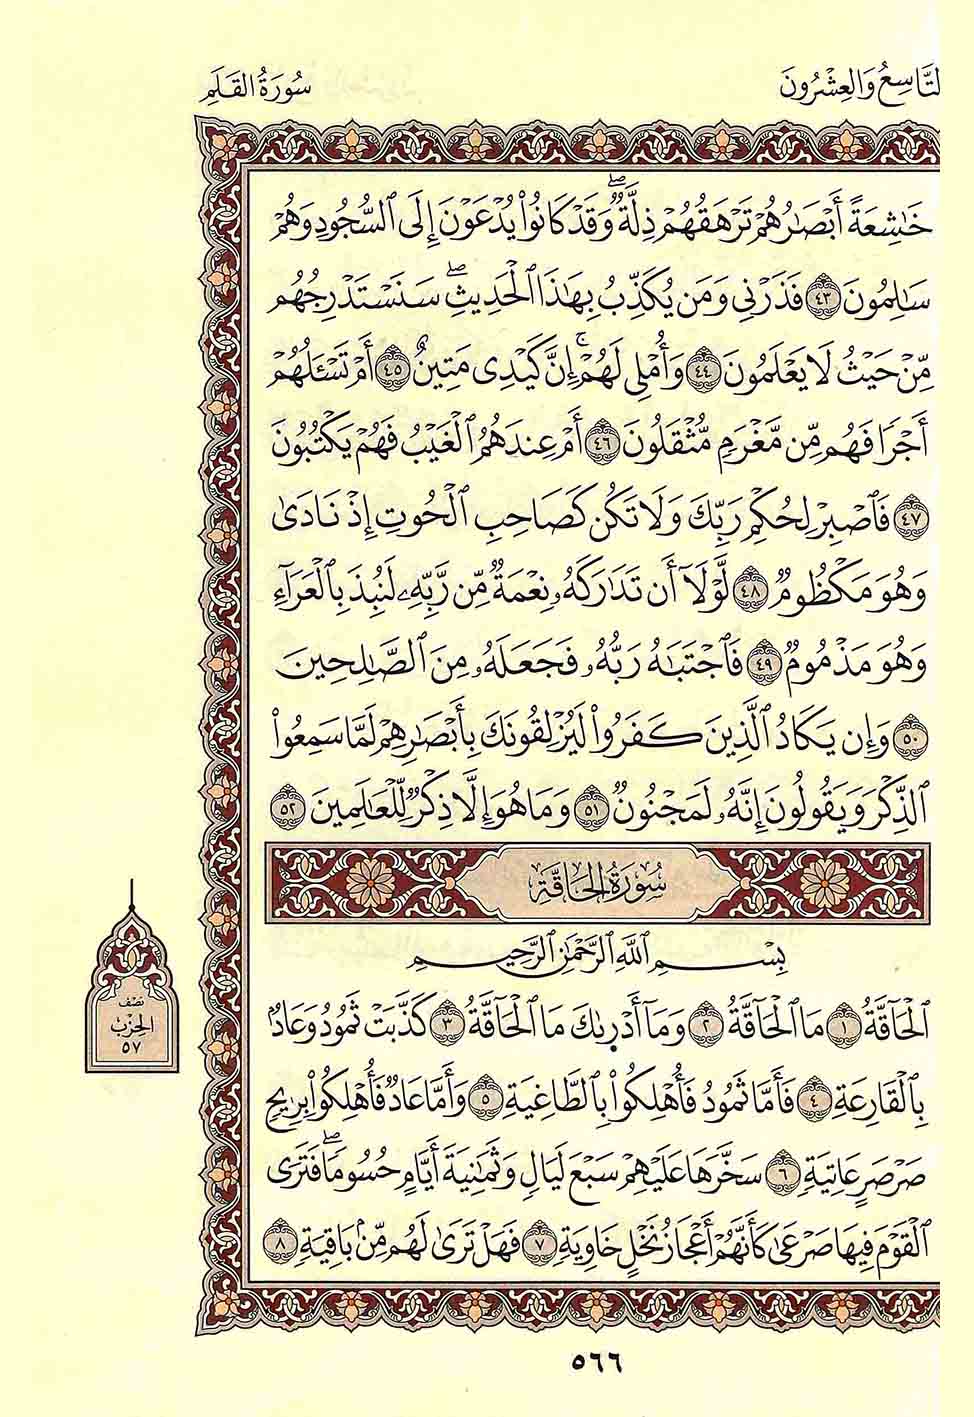 لتَّاسِعُ وَالعِشْرُونَ
سُورَةُ القَلَمِ
خَٰشِعَةً أَبْصَٰرُهُمْ تَرْهَقُهُمْ ذِلَّةٌۖ وَقَدْ كَانُوا۟ يُدْعَوْنَ إِلَى ٱلسُّجُودِ وَهُمْ
سَٰلِمُونَ ٤٣ فَذَرْنِى وَمَن يُكَذِّبُ بِهَٰذَا ٱلْحَدِيثِۖ سَنَسْتَدْرِجُهُم
مِّنْ حَيْثُ لَا يَعْلَمُونَ ٤٤ وَأُمْلِى لَهُمْۚ إِنَّ كَيْدِى مَتِينٌ ٤٥ أَمْ تَسْـَٔلُهُمْ
أَجْرًا فَهُم مِّن مَّغْرَمٍ مُّثْقَلُونَ ٤٦ أَمْ عِندَهُمُ ٱلْغَيْبُ فَهُمْ يَكْتُبُونَ
٤٧ فَٱصْبِرْ لِحُكْمِ رَبِّكَ وَلَا تَكُن كَصَاحِبِ ٱلْحُوتِ إِذْ نَادَىٰ
وَهُوَ مَكْظُومٌ ٤٨ لَّوْلَآ أَن تَدَٰرَكَهُۥ نِعْمَةٌ مِّن رَّبِّهِۦ لَنُبِذَ بِٱلْعَرَآءِ
وَهُوَ مَذْمُومٌ ٤٩ فَٱجْتَبَٰهُ رَبُّهُۥ فَجَعَلَهُۥ مِنَ ٱلصَّٰلِحِينَ
٥٠ وَإِن يَكَادُ ٱلَّذِينَ كَفَرُوا۟ لَيُزْلِقُونَكَ بِأَبْصَٰرِهِمْ لَمَّا سَمِعُوا۟
ٱلذِّكْرَ وَيَقُولُونَ إِنَّهُۥ لَمَجْنُونٌ ٥١ وَمَا هُوَ إِلَّا ذِكْرٌ لِّلْعَٰلَمِينَ ٥٢
سُورَةُ الحَاقَّةِ
بِسْمِ ٱللَّهِ ٱلرَّحْمَٰنِ ٱلرَّحِيمِ
ٱلْحَآقَّةُ ١ مَا ٱلْحَآقَّةُ ٢ وَمَآ أَدْرَىٰكَ مَا ٱلْحَآقَّةُ ٣ كَذَّبَتْ ثَمُودُ وَعَادٌۢ
بِٱلْقَارِعَةِ ٤ فَأَمَّا ثَمُودُ فَأُهْلِكُوا۟ بِٱلطَّاغِيَةِ ٥ وَأَمَّا عَادٌ فَأُهْلِكُوا۟ بِرِيحٍ
صَرْصَرٍ عَاتِيَةٍ ٦ سَخَّرَهَا عَلَيْهِمْ سَبْعَ لَيَالٍ وَثَمَٰنِيَةَ أَيَّامٍ حُسُومًاۖ فَتَرَى
ٱلْقَوْمَ فِيهَا صَرْعَىٰ كَأَنَّهُمْ أَعْجَازُ نَخْلٍ خَاوِيَةٍ ٧ فَهَلْ تَرَىٰ لَهُم مِّنۢ بَاقِيَةٍ ٨
نصف
الحِزْبِ
٥٧
٥٦٦